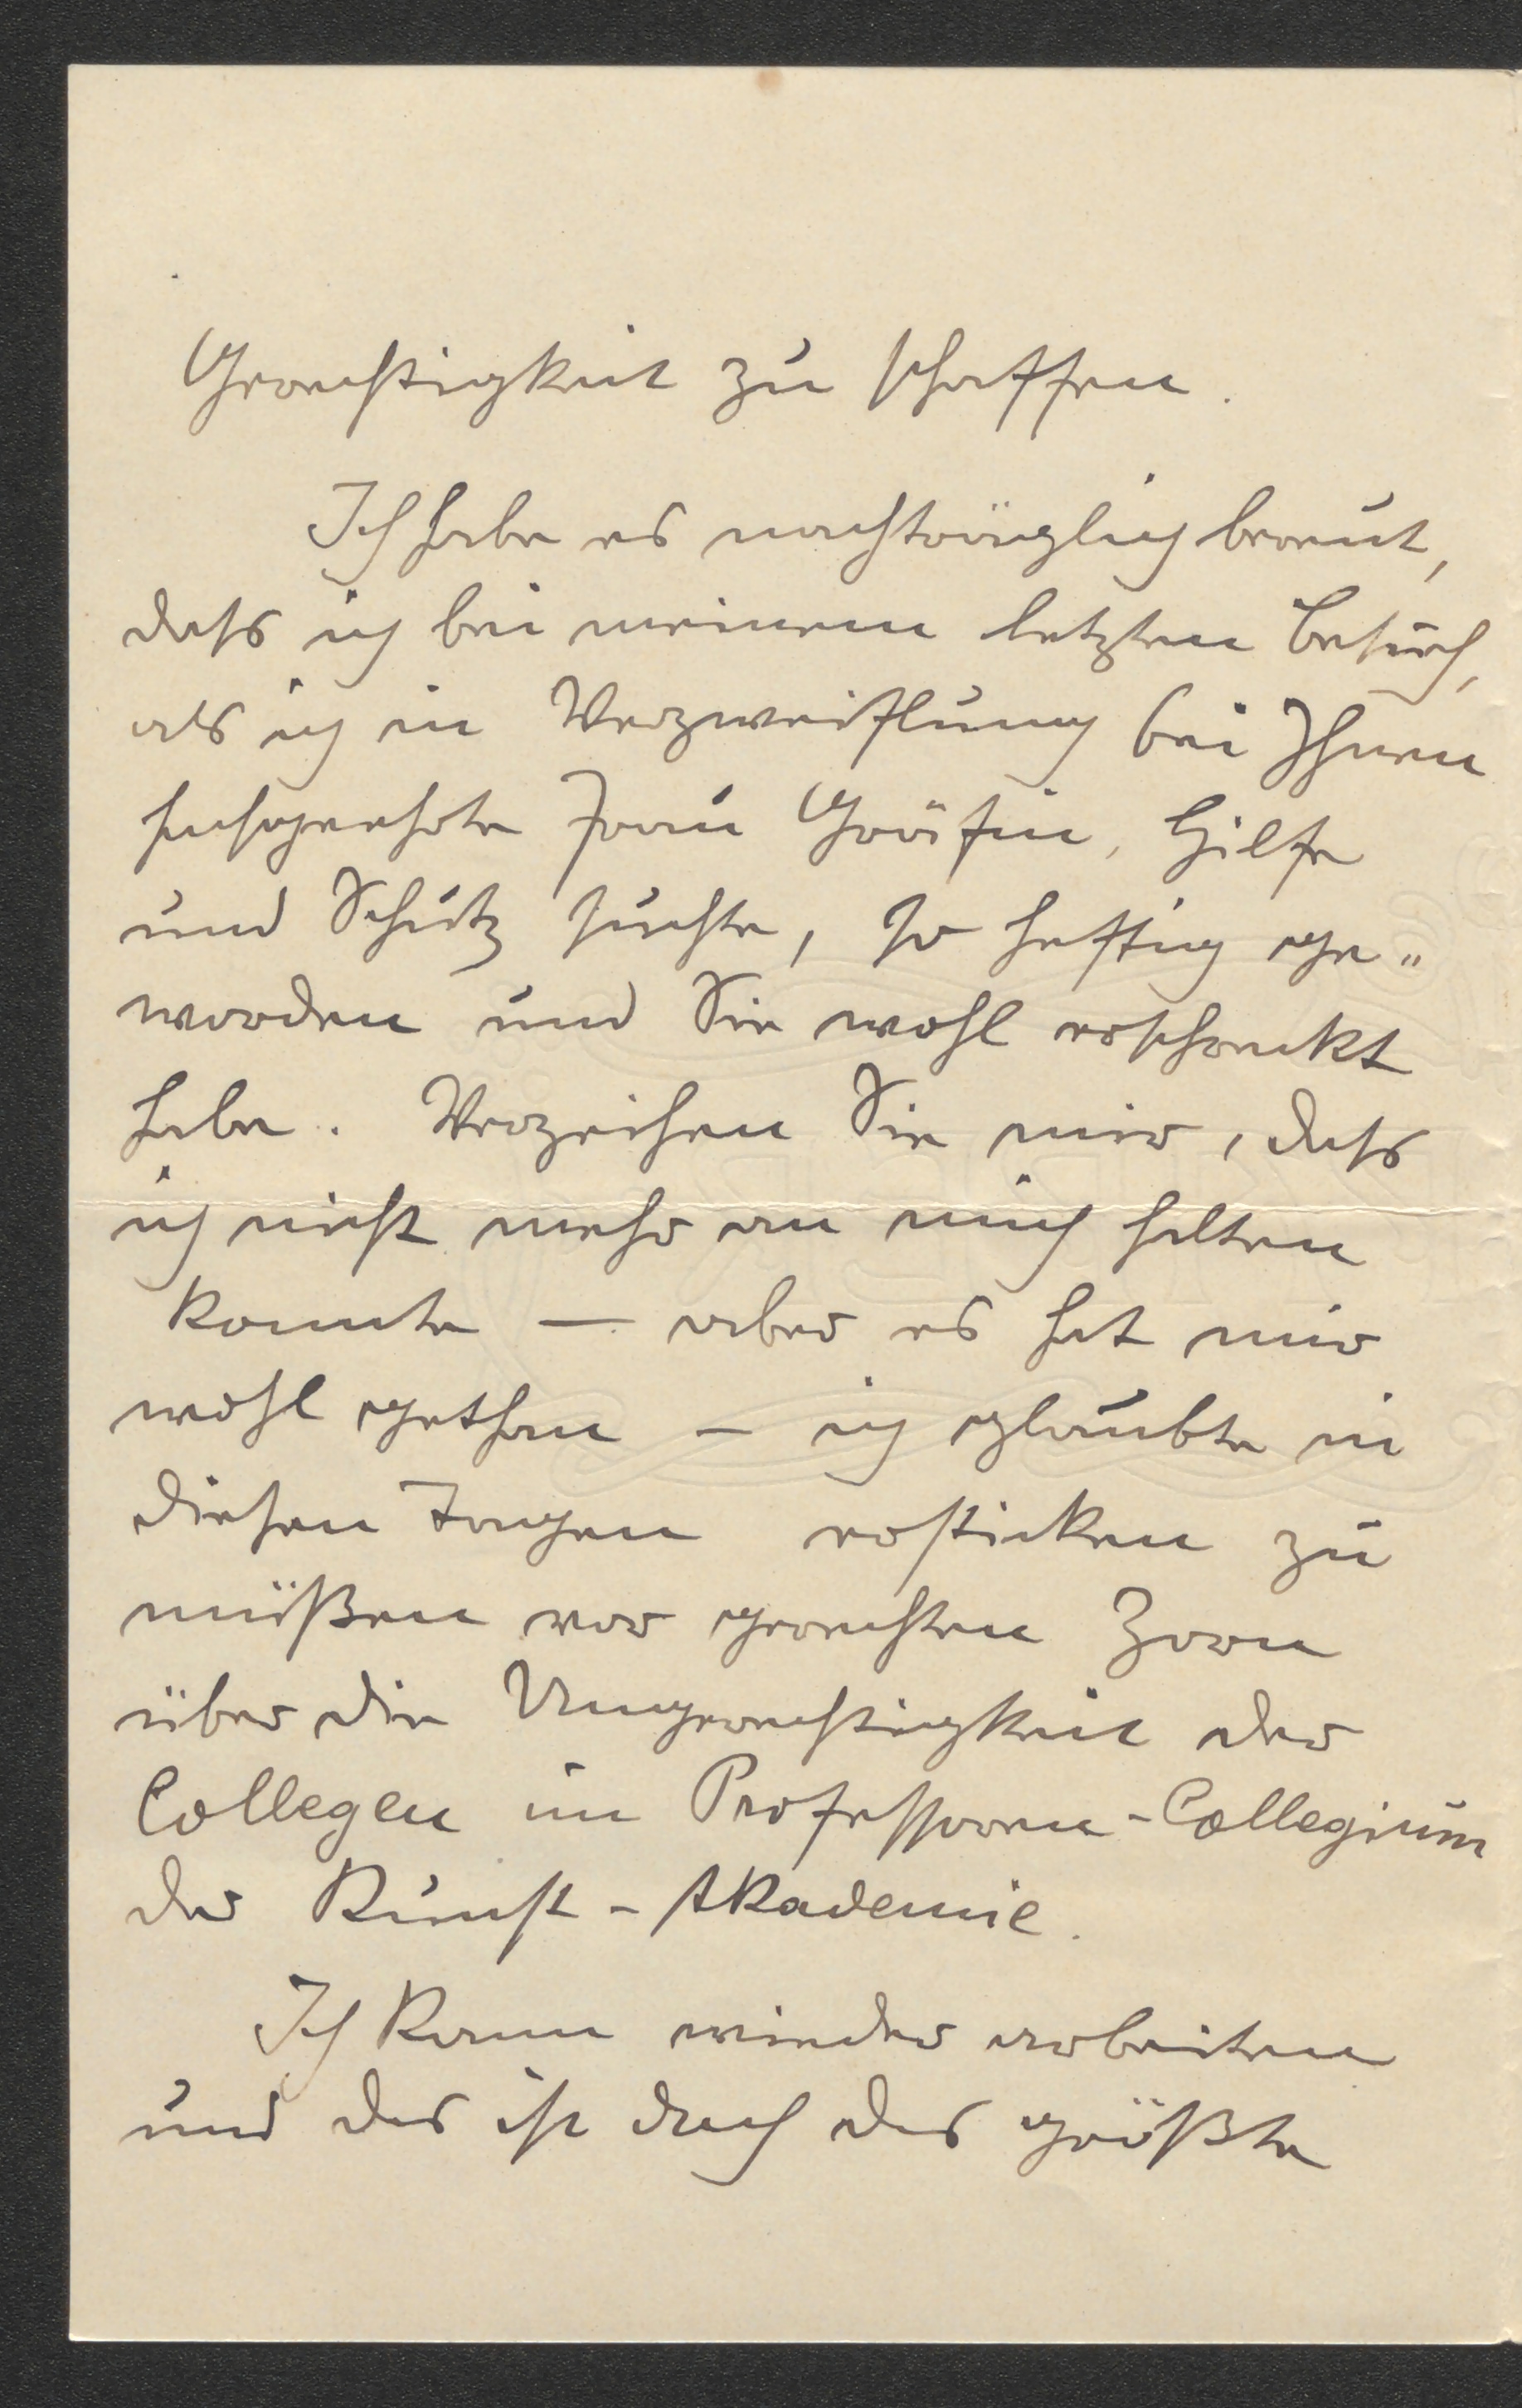 Gerechtigkeit zu schaffen.
Ich habe es nachträglich bereut,
dass ich bei meinem letzten Besuch,
als ich in Verzweiflung bei Ihnen
hochgeehrte Frau Gräfin, Hilfe
und Schutz suchte, so heftig ge„
worden und Sie wohl erschreckt
habe. Verzeihen Sie mir, dass
ich nicht mehr an mich halten
konnte — aber es hat mir
wohl gethan – ich glaubte in
diesen Tagen ersticken zu
müßen vor gerechten Zorn
über die Ungerechtigkeit der
Collegen im Professoren-Collegium
der Kunst-Akademie.
Ich kann wieder arbeiten
und das ist doch das größte